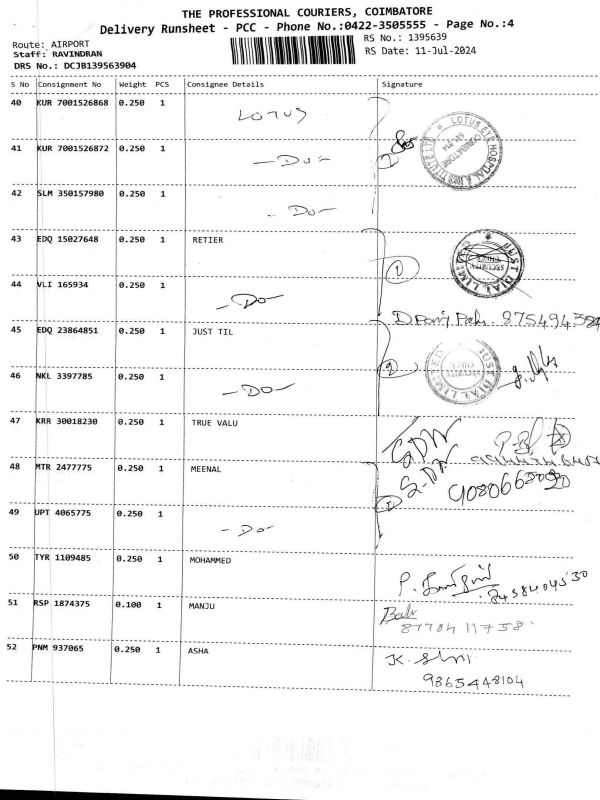 THE PROFESSIONAL COURIERS, COIMBATORE
Delivery Runsheet - PCC - Phone No.:0422-3505555 - Page No.:4
Route: AIRPORT
RS No.: 1395639
Staff: RAVINDRAN
RS Date: 11-Jul-2024
DRS No.: DCJB139563904
S No Consignment No Weight PCS Consignee Details Signature
40 KUR 7001526868 0.250 1 LOTUS
41 KUR 7001526872 0.250 1 -Do-
LOTUS EYE HOSPITAL & INSTITUTE LTD
COIMBATORE
641 014
42 SLM 350157980 0.250 1 -Do-
43 EDQ 15027648 0.250 1 RETIER
1
JUST DIAL LIMITED
SECURITY
44 VLI 165934 0.250 1 -Do-
45 EDQ 23864851 0.250 1 JUST TIL
2
JUST DIAL LIMITED
46 NKL 3397785 0.250 1 -Do-
47 KRR 30018230 0.250 1 TRUE VALU
48 MTR 2477775 0.250 1 MEENAL
49 UPT 4065775 0.250 1 -Do-
50 TYR 1109485 0.250 1 MOHAMMED
51 RSP 1874375 0.100 1 MANJU
52 PNM 937065 0.250 1 ASHA
9865448104